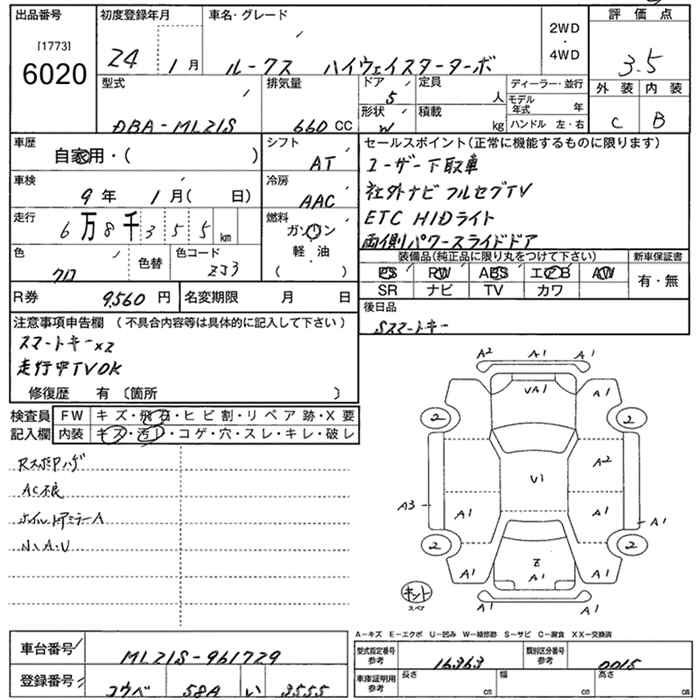 出品番号
[1773]
6020
初度登録年月
24 1月
車名・グレード
ルークス ハイウェイスターターボ
2WD
・
4WD
評価点
3.5
外装 内装
C B
型式
DBA-ML21S
排気量
660 CC
ドア 5
形状 W
定員 人
積載 kg
ディーラー・並行
モデル年式 年
ハンドル 左・右
車歴
自家用・( )
シフト
AT
車検
9年 1月( 日)
冷房
AAC
走行
6万8千355 km
燃料
ガソリン
軽・油
( )
色
クロ
色替
色コード
ZJ3
R券 9,560円
名変期限 月 日
セールスポイント(正常に機能するものに限ります)
ユーザー下取車
社外ナビ フルセグTV
ETC HIDライト
両側パワースライドドア
装備品(純正品に限り丸をつけて下さい)
新車保証書
PS RW ABS エアB AW
有・無
SR ナビ TV カワ
後日品
Sスマートキー
注意事項申告欄 (不具合内容等は具体的に記入して下さい)
スマートキーx2
走行中TVOK
修復歴 有 〔箇所 〕
検査員記入欄
FW キズ・飛石・ヒビ割・リペア跡・X要
内装 キズ・汚レ・コゲ・穴・スレ・キレ・破レ
AC不良
ハ.A.U
A2 A1 A1
UA1
A1
2 2
A2
U1
A3
A1 A1
A1
2 2
Z
A1
A1 A1
A1
キット
スペア
A-キズ E-エクボ U-凹み W-補修跡 S-サビ C-腐食 XX-交換済
車台番号
ML21S-961729
型式指定番号 参考
16363
類別区分番号 参考
0015
登録番号
コウベ 581 い 3555
車庫証明用 参考
長さ cm
幅 cm
高さ cm